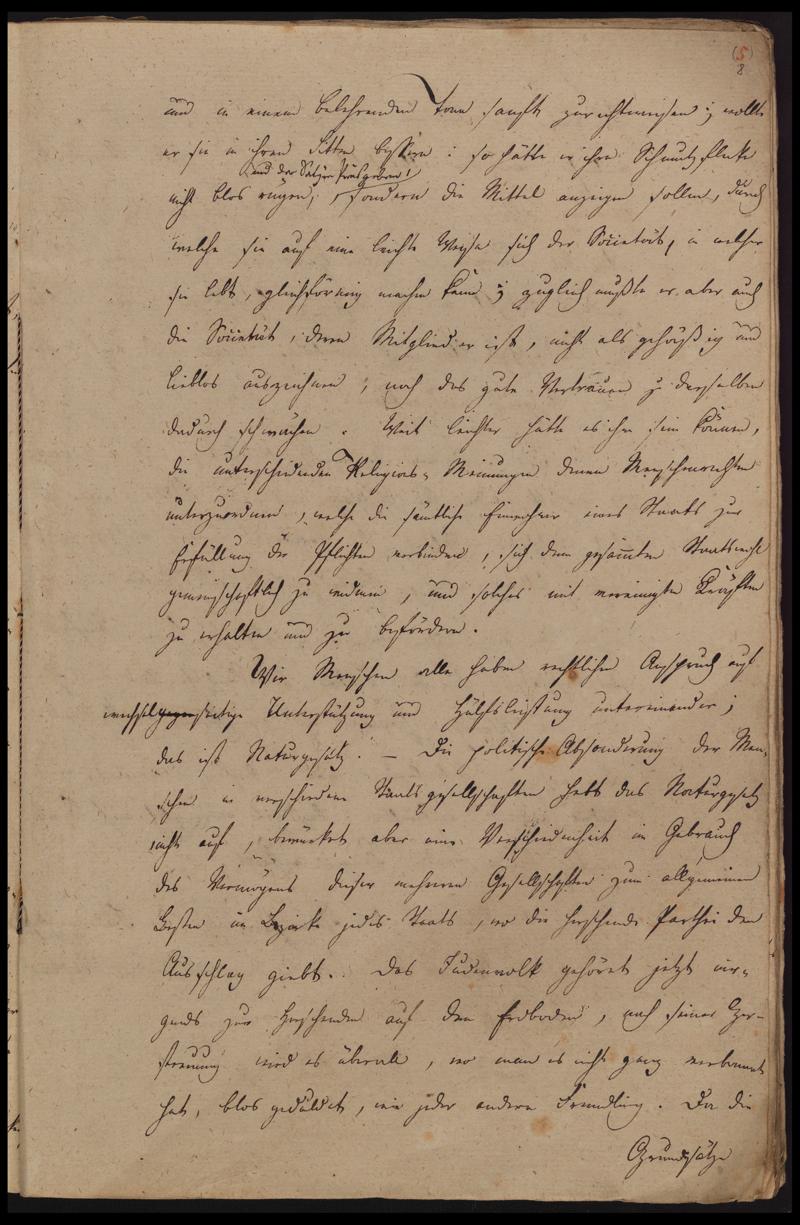 (5)
8
und in einem belehrenden Tone sanft zurechtweisen; wollte
er sie in ihren Sitten bessern: so hätte er ihre Schmutzflecke
und der Satyre Preis geben!
nicht blos rügen, sondern die Mittel anzeigen sollen, durch
welche sie auf eine leichte Weise sich der Societät, in welcher
sie lebt, gleichförmig machen kann; zugleich mußte er aber auch
die Societät, deren Mitglied er ist, nicht als gehäßig und
lieblos auszeichnen, noch das gute Vertrauen zu derselben
dadurch schwächen. Weit leichter hätte es ihm sein können,
die unterscheidenden Religions-Meinungen denen Menschenrechten
unterzuordnen, welche die sämtliche Einwohner eines Staats zur
Erfüllung der Pflichten verbinden, sich dem gesammten Staatswohl
gemeinschaftlich zu widmen, und solches mit vereinigten Kräften
zu erhalten und zu befördern.
Wir Menschen alle haben rechtlichen Anspruch auf
wechselgegenseitige Unterstützung und Hülfsleistung untereinander;
das ist Naturgesetz. — Die politische Absonderung der Men-
schen in verschiedene Staatsgesellschaften hebt das Naturgesetz
nicht auf, bewürket aber eine Verschiedenheit im Gebrauch
des Vermögens dieser mehreren Gesellschaften zum allgemeinen
Besten im Bezirke jedes Staats, wo die herschende Parthei den
Ausschlag giebt. Das Judenvolk gehöret jetzt nir-
gends zur herschenden auf dem Erdboden, nach seiner Zer-
streuung wird es überall, wo man es nicht ganz verbannt
hat, blos geduldet, wie jeder andere Fremdling. Da die
Grundsätze